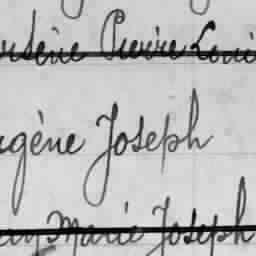 Pierre Loui
ugène Joseph
Marie Joseph